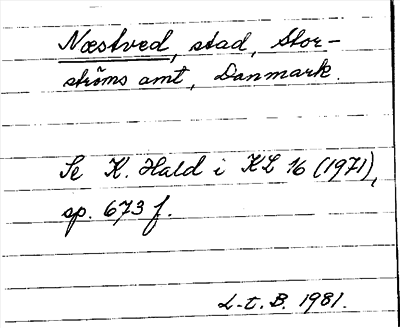 Næstved, stad, Stor-
ströms amt, Danmark.
Se K. Hald i KL 16 (1971),
sp. 673 f.
L.t.B. 1981.